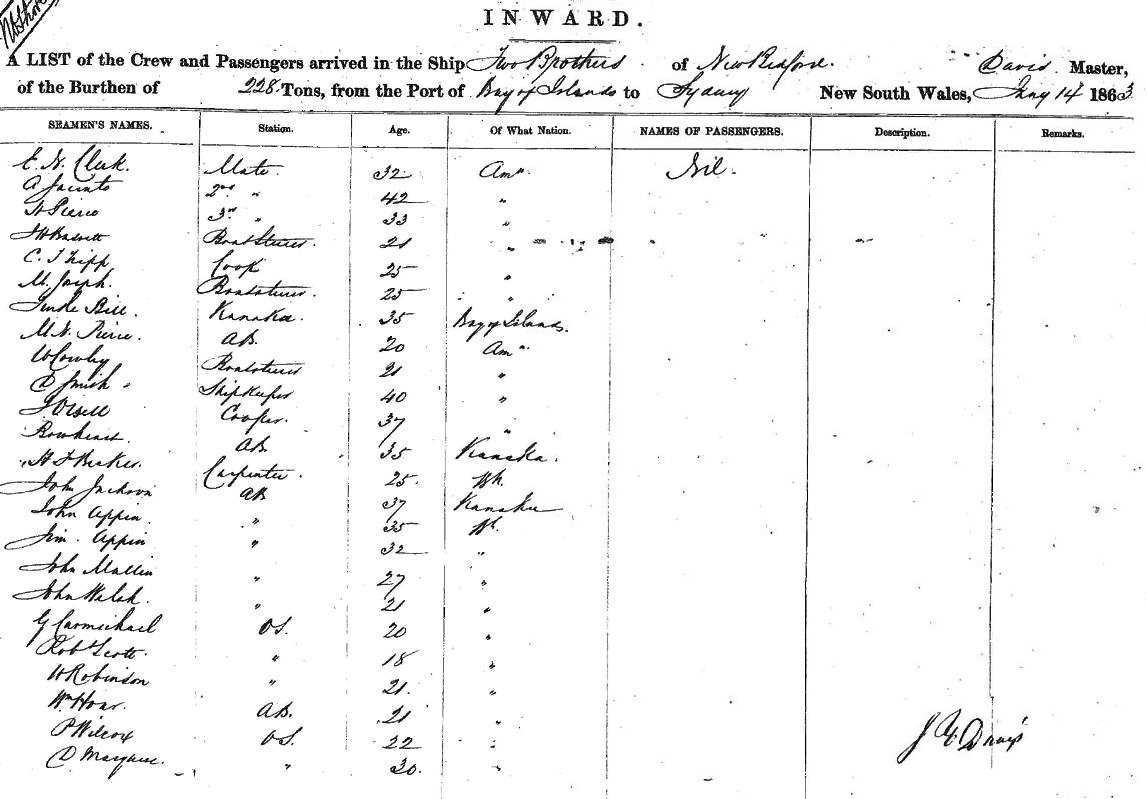 INWARD.
A LIST of the Crew and Passengers arrived in the Ship Two Brothers of New Bedford. Davis Master,
of the Burthen of 228 Tons, from the Port of Bay of Islands to Sydney New South Wales, Jany 14 1863
SEAMEN'S NAMES. Station. Age. Of What Nation. NAMES OF PASSENGERS. Description. Remarks.
E. N. Clerk. Mate. 32 Amn. Nil.
A Jacinto 2nd " 42 "
Pierce 3rd " 33 "
Boatsteerer. 21 "
C. Tripp Cook 25 "
M. Joseph. Boatsteerer. 25 "
Bill. Kanaka. 35 Bay of Islands.
M. N. Pierce. AB. 20 Amn.
W Cowley Boatsteerer 21 "
D Smith Shipkeeper 40 "
Cooper. 37 "
AB 35 Kanaka.
Carpenter. 25. Wh.
John Jackson AB 37 Kanaka
John Appin. " 35 Wh.
Jim Appin " 32 "
John Mullin " 27 "
John Welsh. " 21 "
G Carmichael OS. 20 "
Robt Scott. " 18 "
W Robinson " 21. "
Wm Hoar. AB. 21 "
P Wilcox OS. 22 "
D " 30. "
Davis